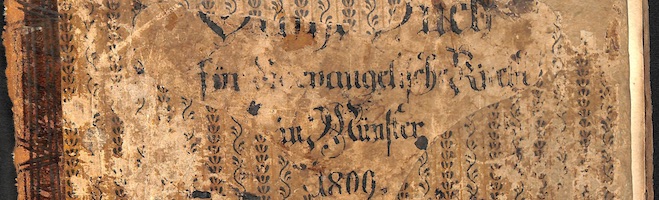 Buch
für die evangelische Kirche
in Münster
1809.